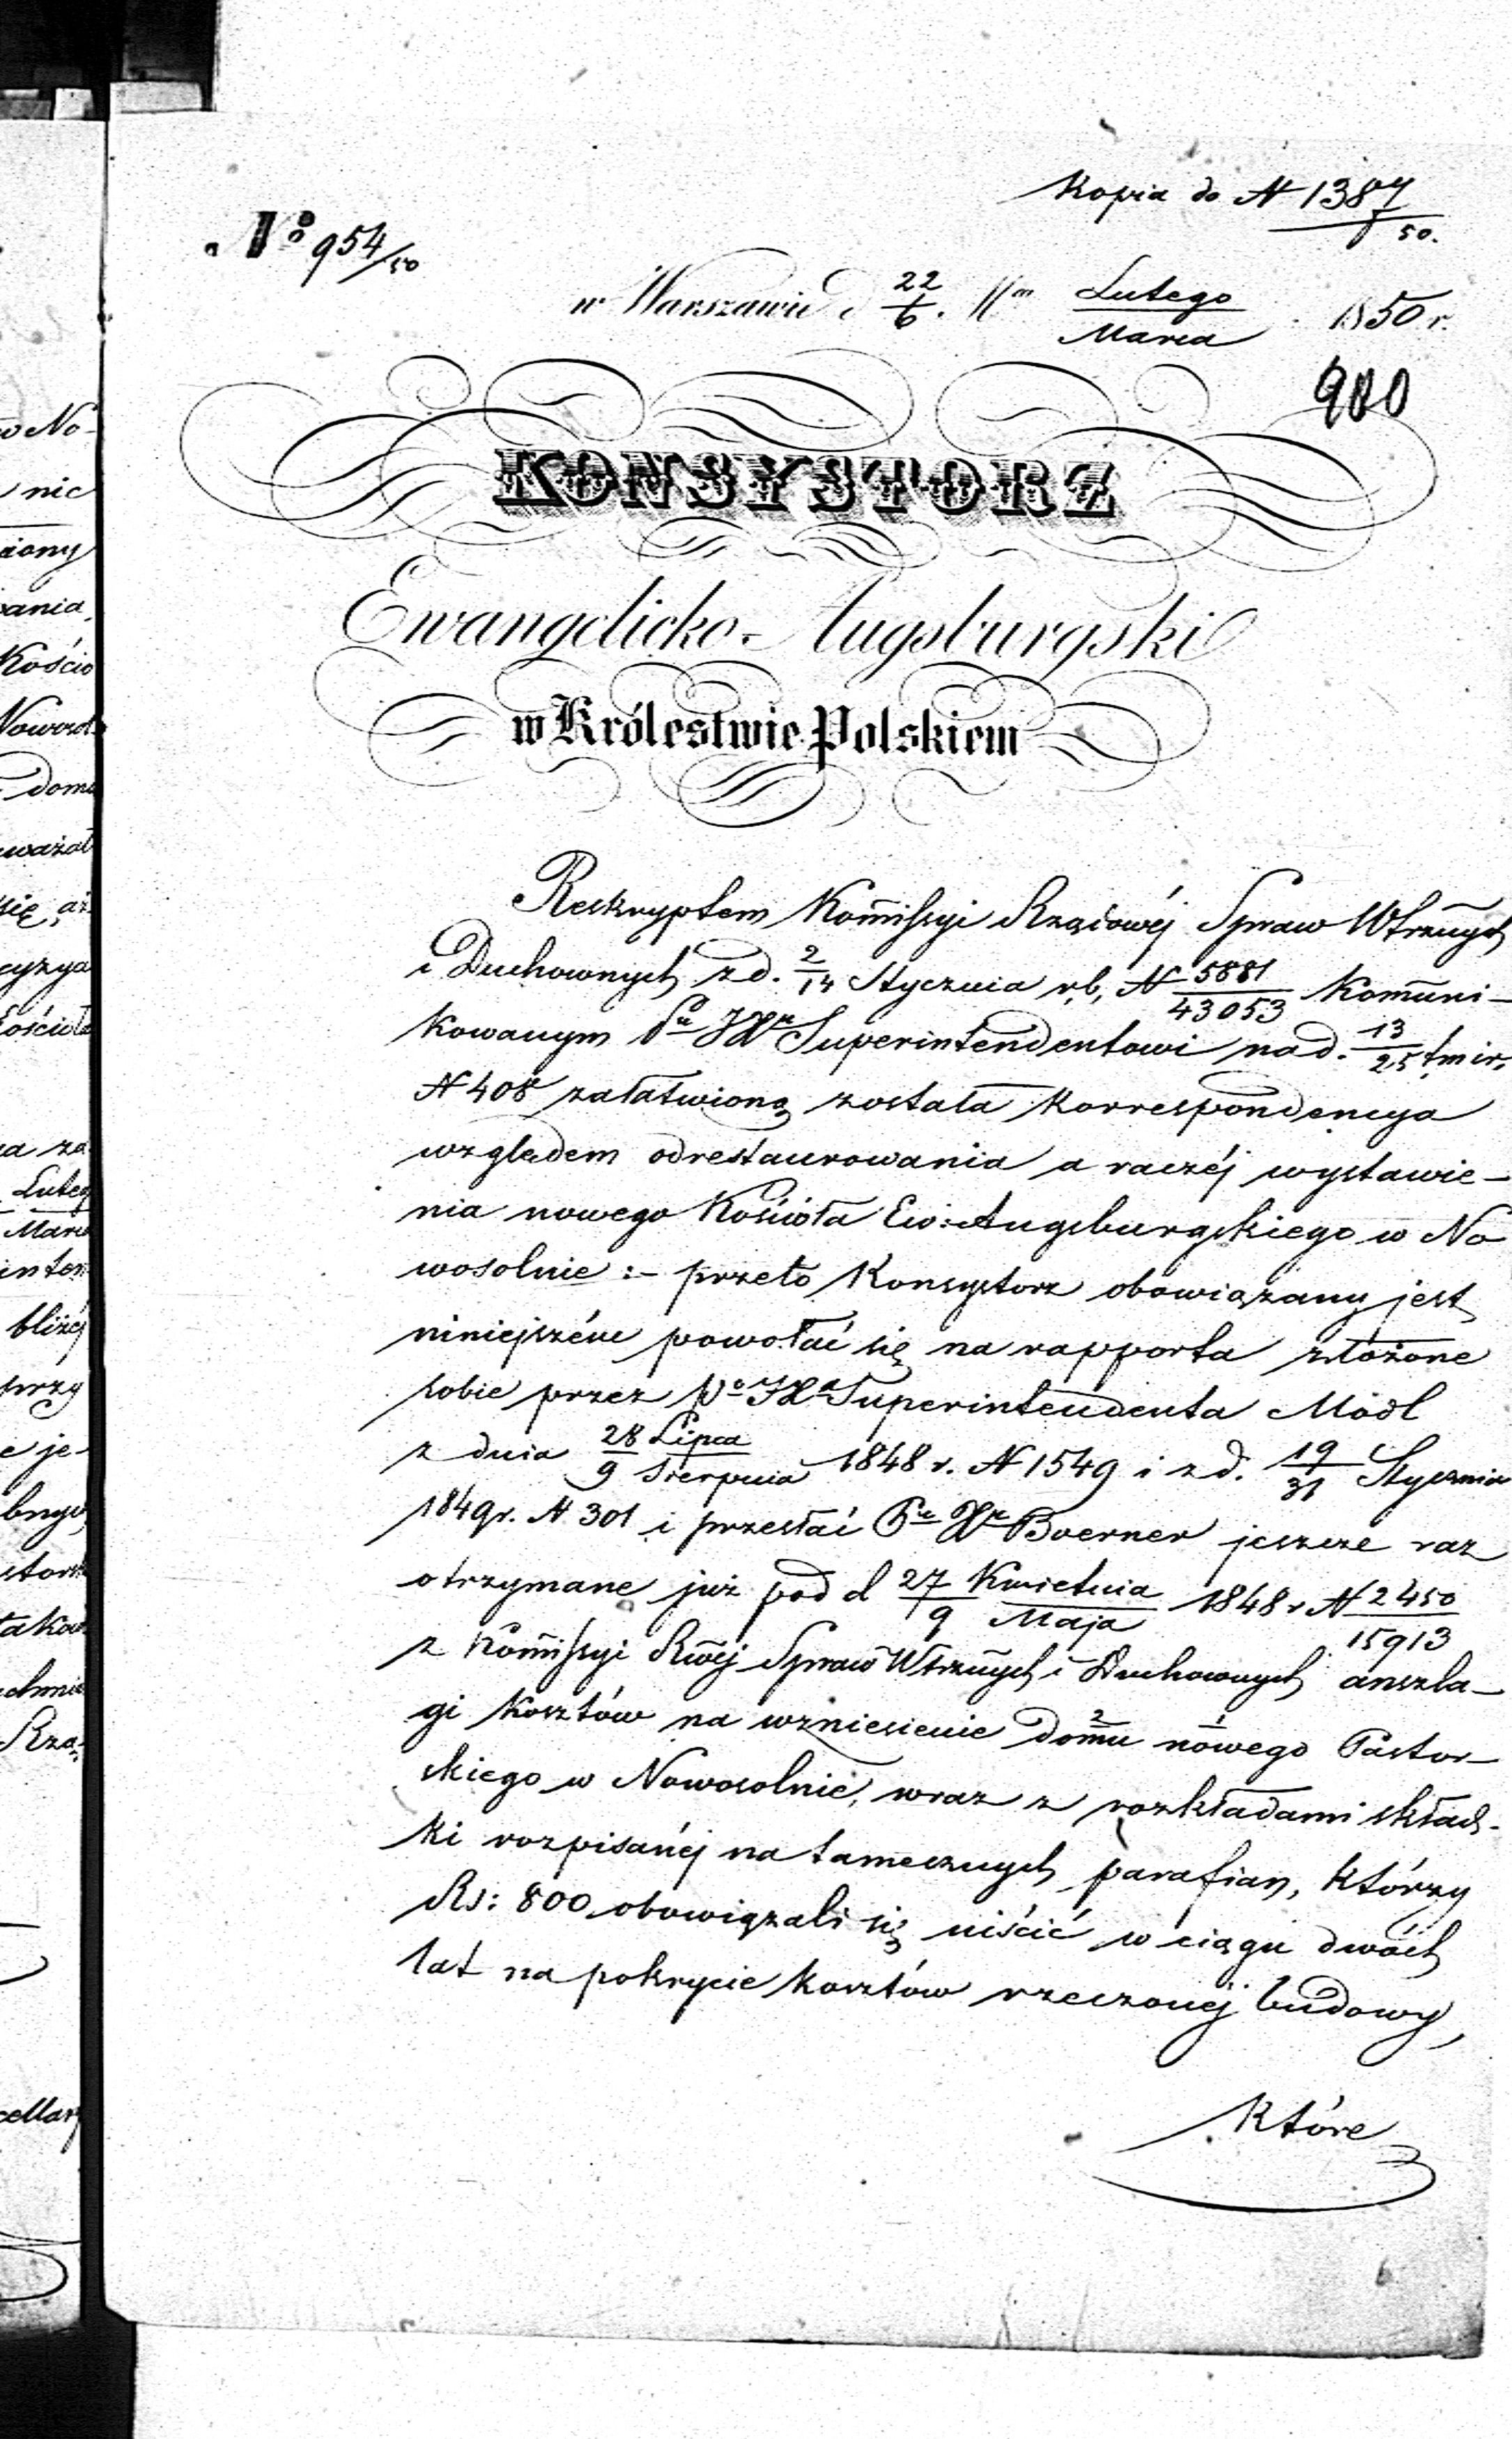 Kopia do N 1387/50.
No 954/50
w Warszawie d 22/6. Mca Lutego/Marca 1850 r.
900
KONSYSTORZ
Ewangelicko-Augsburgski
w Królestwie Polskiem
Reskryptem Kommissyi Rządowéj Spraw Wtrznych
i Duchownych z d. 2/14 Stycznia r.b. N 5881/43053 Komuni-
kowanym Pu JXu Superintendentowi na d. 13/25 t.m i r.
N 408 załatwioną została korrespondencya
względem odrestaurowania a raczéj wystawie-
nia nowego Kościoła Ew: Augsburgskiego w No
wosolnie :- przeto Konsystorz obowiązany jest
niniejszém powołać się na rapporta złożone
sobie przez Pa JXa Superintendenta Modl
z dnia 28 Lipca/9 Sierpnia 1848 r. N 1549 i z d. 19/31 Stycznia
1849 r. N 301 i przesłać Pu Xu Boerner jeszcze raz
otrzymane już pod d 27 Kwietnia/9 Maja 1848 r N 2450/15913
z Kommissyi Rwéj Spraw Wtrznych i Duchownych anszla-
gi kosztów na wzniesienie 2 domu 1 nowego Pastor-
skiego w Nowosolnie, wraz z rozkładami skład-
ki rozpisanéj na tamecznych parafian, którzy
Rs: 800 obowiązali się uiścić w ciągu dwóch
lat na pokrycie kosztów rzeczonéj budowy,
które
w No-
nic
Kościo
domu
uważał
się, aż
cyzya
Kościoła
za
Luteg
Marc
inten
bliżéj
przy
e je-
stors
takow
Rzą-
cellar